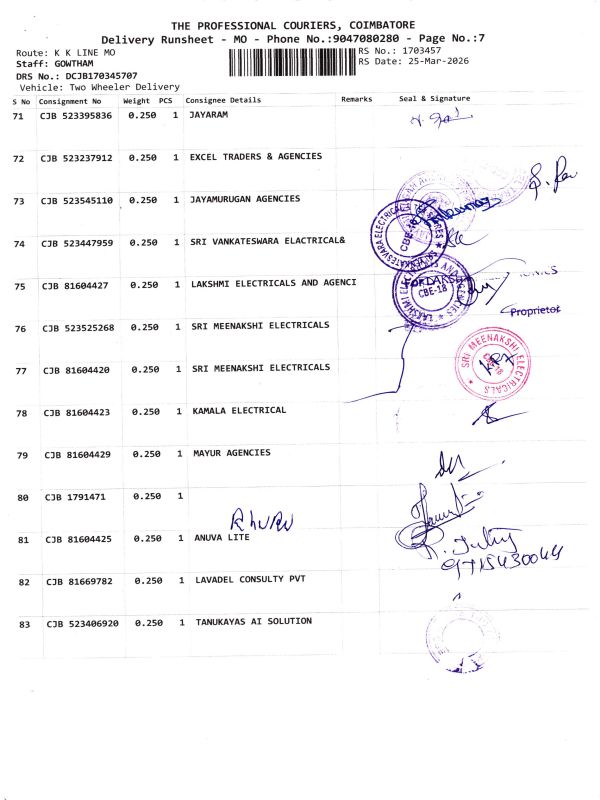 THE PROFESSIONAL COURIERS, COIMBATORE
Delivery Runsheet - MO - Phone No.:9047080280 - Page No.:7
Route: K K LINE MO
RS No.: 1703457
Staff: GOWTHAM
RS Date: 25-Mar-2026
DRS No.: DCJB170345707
Vehicle: Two Wheeler Delivery
S No Consignment No Weight PCS Consignee Details Remarks Seal & Signature
71 CJB 523395836 0.250 1 JAYARAM
72 CJB 523237912 0.250 1 EXCEL TRADERS & AGENCIES
73 CJB 523545110 0.250 1 JAYAMURUGAN AGENCIES
74 CJB 523447959 0.250 1 SRI VANKATESWARA ELACTRICAL&
75 CJB 81604427 0.250 1 LAKSHMI ELECTRICALS AND AGENCI
Proprietor
76 CJB 523525268 0.250 1 SRI MEENAKSHI ELECTRICALS
77 CJB 81604420 0.250 1 SRI MEENAKSHI ELECTRICALS
SRI MEENAKSHI ELECTRICALS
78 CJB 81604423 0.250 1 KAMALA ELECTRICAL
79 CJB 81604429 0.250 1 MAYUR AGENCIES
80 CJB 1791471 0.250 1
81 CJB 81604425 0.250 1 ANUVA LITE
9715430044
82 CJB 81669782 0.250 1 LAVADEL CONSULTY PVT
83 CJB 523406920 0.250 1 TANUKAYAS AI SOLUTION